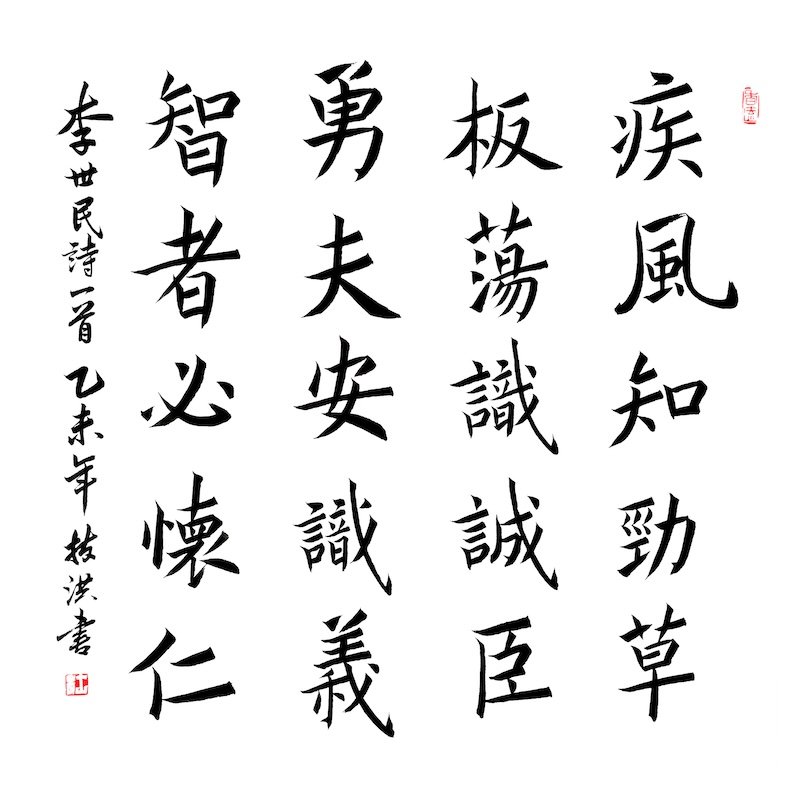 疾風知勁草
板蕩識誠臣
勇夫安識義
智者必懷仁
李世民詩一首 乙未年 技洪書